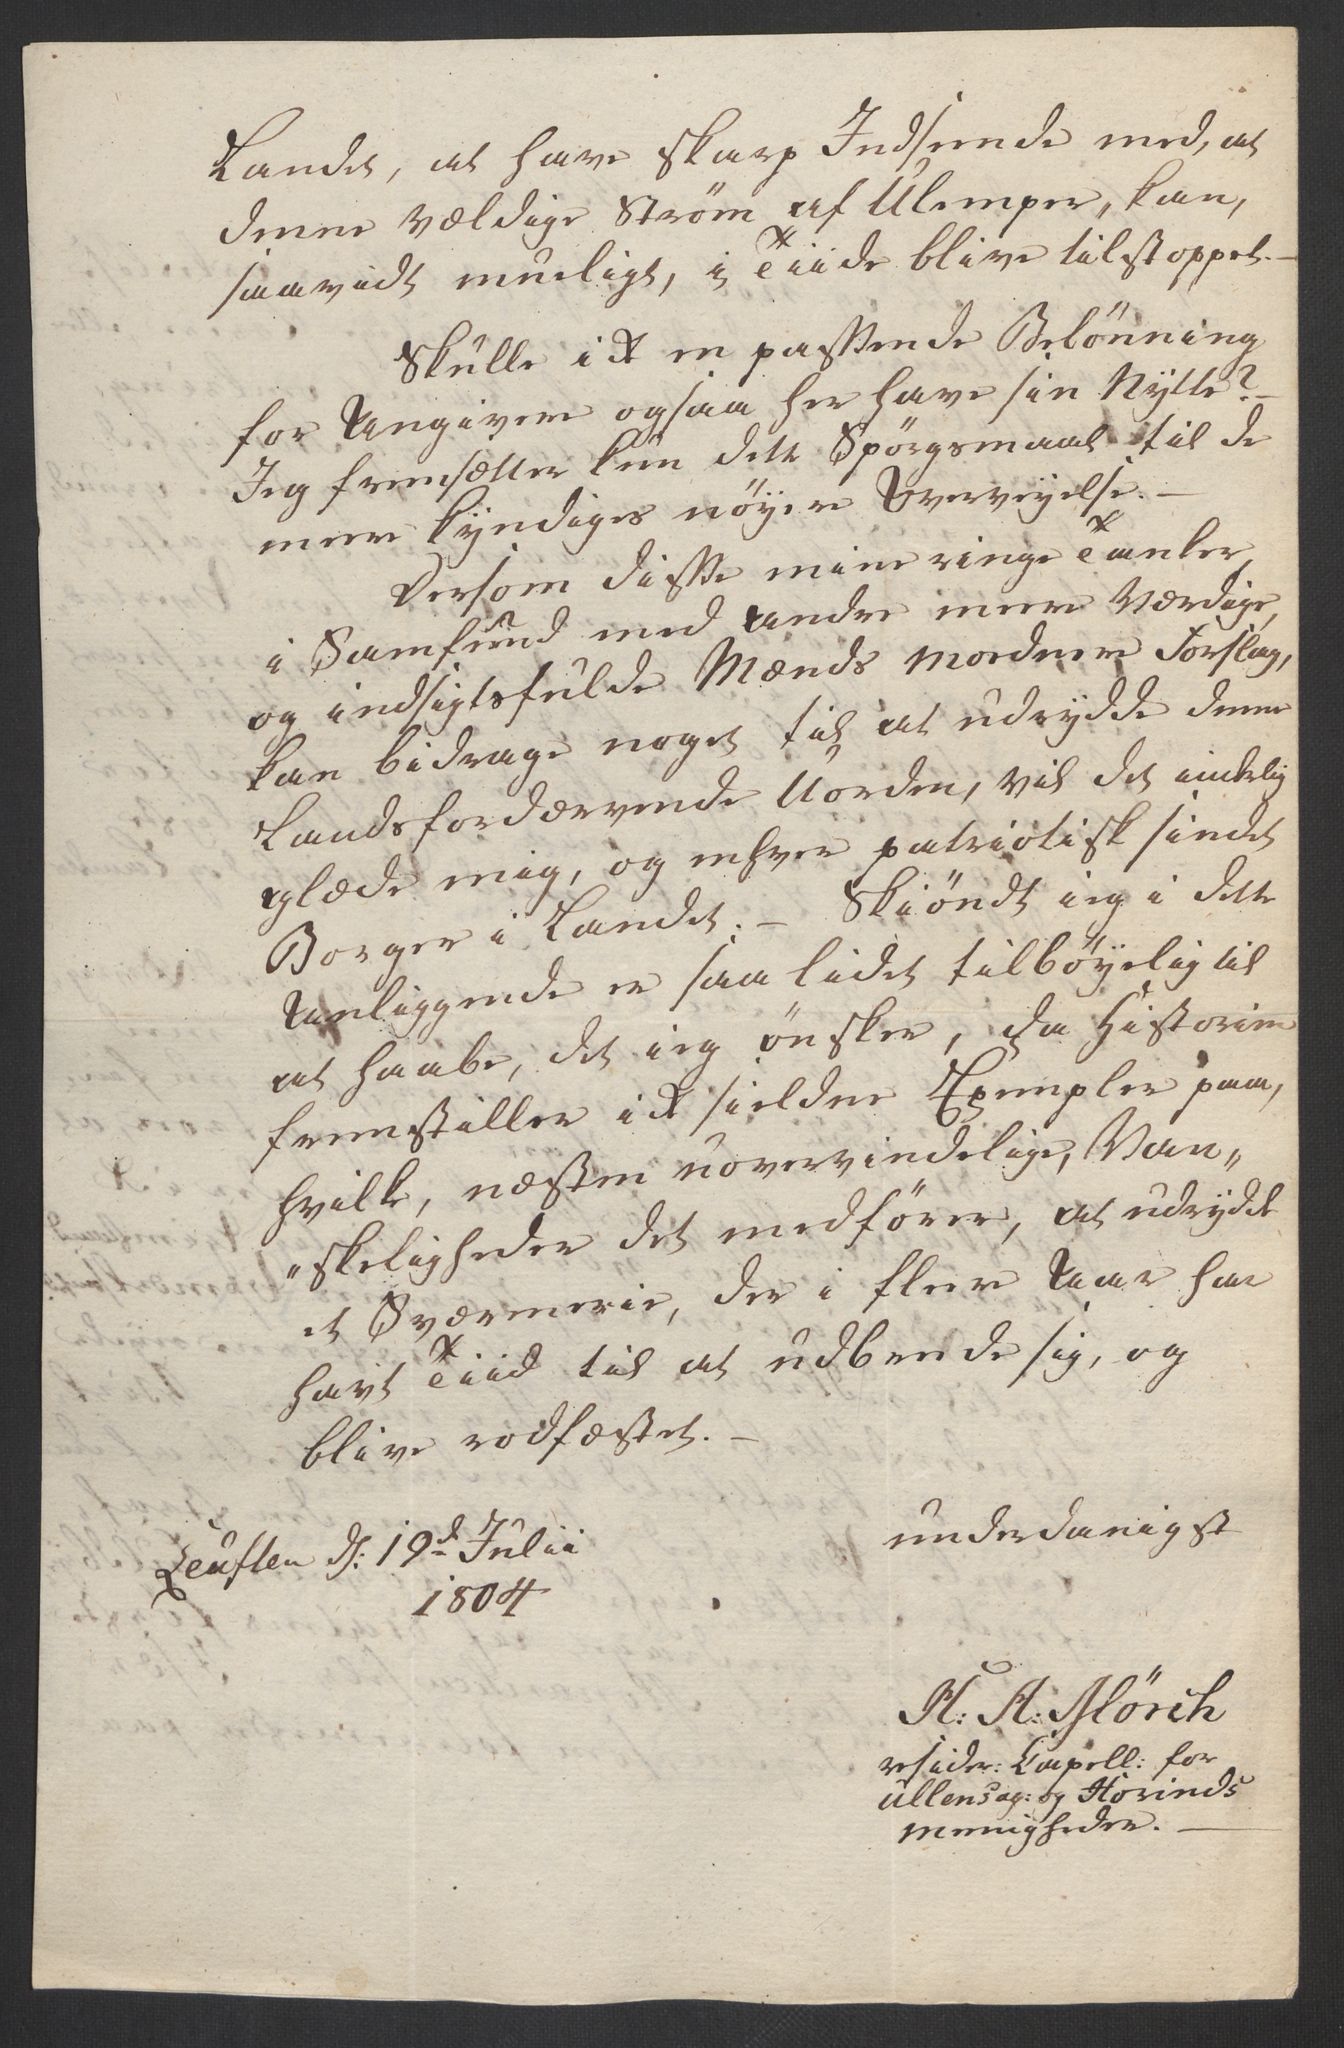 Landet, at have skarp Indseende med, at
denne vældige Ström af Ulemper, kan,
saavidt mueligt, i Tiide blive tilstoppet. —
Skulle ikke en passende Belönning
for Angivere ogsaa her have sin Nytte? —
Jeg fremsætter kun dette Spörgsmaal til de
meere kyndiges nöyere Overveyelse. —
Dersom disse mine ringe Tanker,
i Samfund med andre meere værdige,
og indsigtsfulde Mænds modnere Forslag,
kan bidrage noget til at udrydde denne
Landsfordærvende Uorden, vil det inderlig
glæde mig, og enhver patriotisk sindet
Borger i Landet. — Skiöndt ieg i dette
Anliggende er saa lidet tilböyelig til
at haabe, det ieg önsker, da Historien
fremstiller ikke sieldne Exempler paa,
hvilke, næsten uovervindelige, Van„
„skeligheder det medförer, at udrydde
et Sværmerie, der i fleere Aar har
havt Tiid til at udbrede sig, og
blive rodfæstet. —
underdanigst
Leuften d: 19d Julii
1804
H: A: Mörch
resider: Capell: for
Ullensag: og Hovinds
Menigheder. —